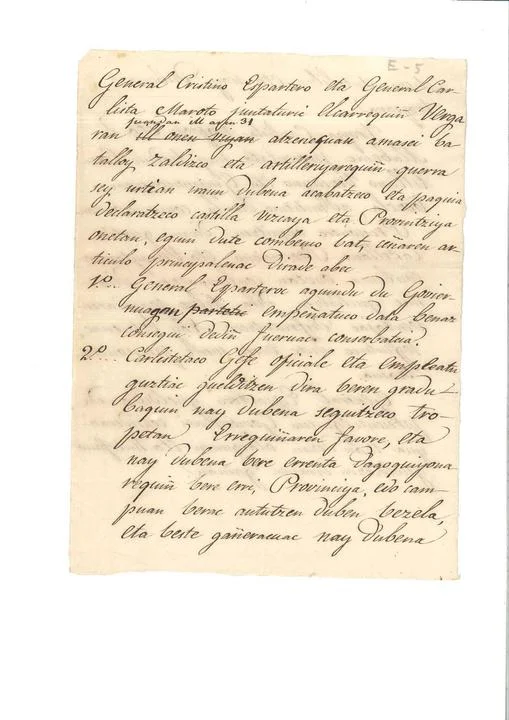 E-5
General Cristino Espartero eta General Car-
lista Maroto juntaturic Elcarrequiñ Verga
juandan
ran ill onen viyan atzenequan amasei ba
talloy zaldizco eta artilleriyarequiñ guerra
sey urtian iraun dubena acabatzeco eta paquia
declaratzeco castilla vizcaya eta Provintziya
onetan, eguin dute combenio bat, ceñaren ar-
ticulo principalenac dirade abec
1.º General Esparteroc aguindu du Govier-
nuagan partetic empeñatuco dala benaz
consegui dediñ fueruac conserbatcia.
2.º Carlistetaco Gefe oficiale eta empleatu
guztiac gueldizen dira beren gradu-
baquin nay dubena seguitzeco tro-
petan Erreguiñaren favore, eta
nay dubena bere errenta dagoquiyona
requiñ bere erri, Provinciya, edo cam-
puan berac autatzen duben bezela,
eta beste gañeracuac nay dubena